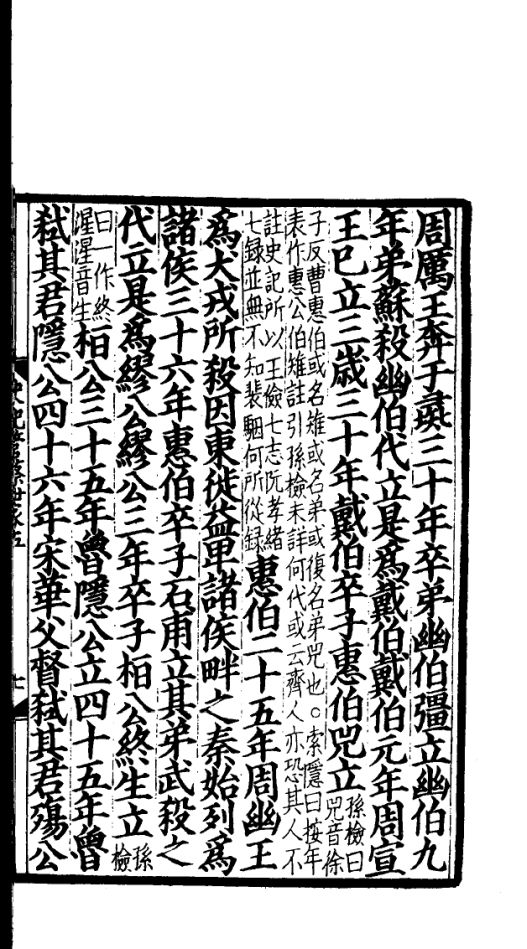 周厲王奔于彘三十年卒弟幽伯彊立幽伯九
年弟蘇殺幽伯代立是為戴伯戴伯元年周宣
王已立三歲三十年戴伯卒子惠伯兕立孫檢曰
兕音徐
子反曹惠伯或名雉或名弟或復名弟兕也。索隱曰按年
表作惠公伯雉註引孫檢未詳何代或云齊人亦恐其人不
註史記所以王儉七志阮孝緒
七録並無不知裴駰何所從録
惠伯二十五年周幽王
為犬戎所殺因東徙益卑諸侯畔之秦始列為
諸侯三十六年惠伯卒子石甫立其弟武殺之
代立是為繆公繆公三年卒子桓公終生立孫
檢
曰一作終
湦湦音生
桓公三十五年魯隱公立四十五年魯
弒其君隱公四十六年宋華父督弒其君殤公
史記管蔡世家五